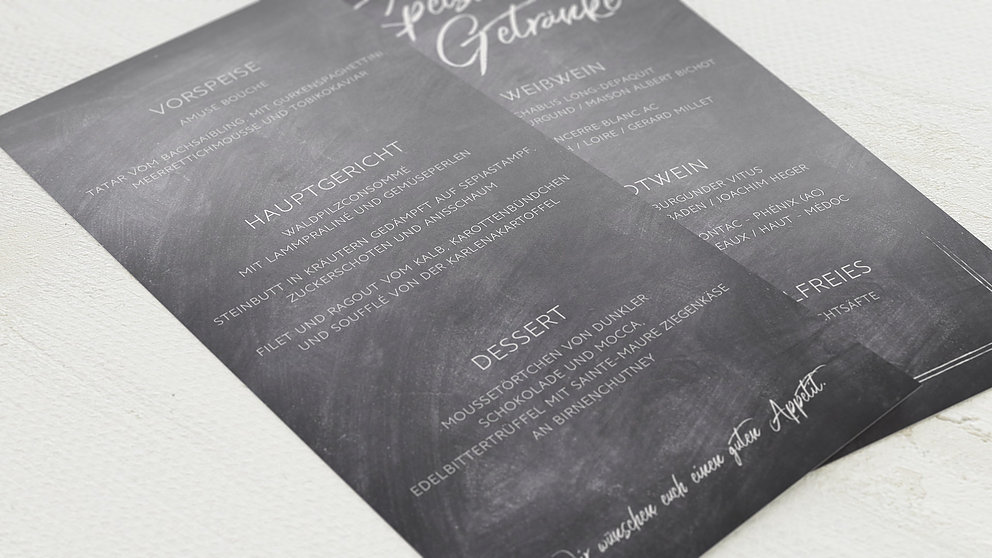 VORSPEISE
AMUSE BOUCHE
TATAR VOM BACHSAIBLING MIT GURKENSPAGHETTINI
MEERRETTICHMOUSSE UND TOBIKOKAVIAR
HAUPTGERICHT
WALDPILZCONSOMMÉ
MIT LAMMPRALINÉ UND GEMÜSEPERLEN
STEINBUTT IN KRÄUTERN GEDÄMPFT AUF SEPIASTAMPF,
ZUCKERSCHOTEN UND ANISSCHAUM
FILET UND RAGOUT VOM KALB, KAROTTENBÜNDCHEN
UND SOUFFLÉ VON DER KARLENAKARTOFFEL
DESSERT
MOUSSETÖRTCHEN VON DUNKLER
SCHOKOLADE UND MOCCA,
EDELBITTERTRÜFFEL MIT SAINTE-MAURE ZIEGENKÄSE
AN BIRNENCHUTNEY
wünschen euch einen guten Appetit.
Getränke
WEIßWEIN
CHABLIS LONG-DEPAQUIT
/ MAISON ALBERT BICHOT
BLANC AC
/ LOIRE / GÉRARD MILLET
VITUS
/ JOACHIM HEGER
PHÉNIX (AC)
/ HAUT - MÉDOC